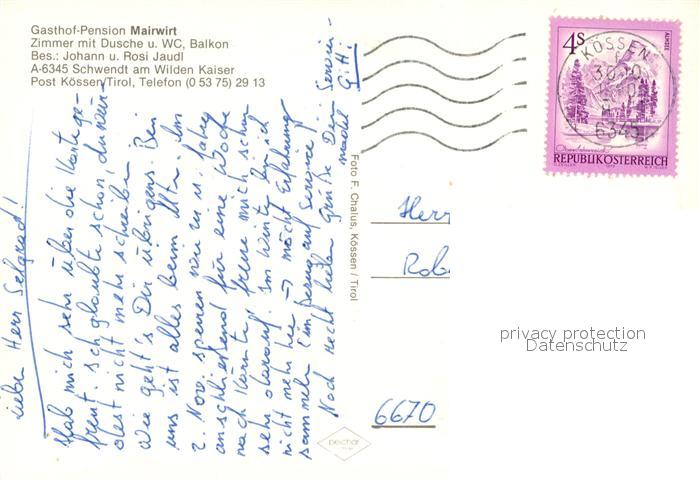 Gasthof-Pension Mairwirt
Zimmer mit Dusche u. WC, Balkon
Bes.: Johann u. Rosi Jaudl
A-6345 Schwendt am Wilden Kaiser
Post Kössen/Tirol, Telefon (0 53 75) 29 13
Lieber Herr Selgrad!
Hab mich sehr über die Karte ge-
freut. Ich glaubte schon, du
mehr schreiben
Wie geht's Dir übrigens. Bei
uns ist alles beim Alten. Am
2. Nov. sperren wir zu u. fahren
anschließend für eine Woche
nach Kärnten, freue mich schon
sehr darauf. Im Winter bin ich
nicht mehr hier → möcht Erfahrung
sammeln (im bezug auf Service)
Noch recht lieben Grüße Dein Servier-
madel
Gitti
Foto F. Chalus, Kössen / Tirol
4S
ALMSEE
KÖSSEN
30.10.
6345
Oberösterreich
REPUBLIK ÖSTERREICH
Herr
Rob
6670
privacy protection
Datenschutz